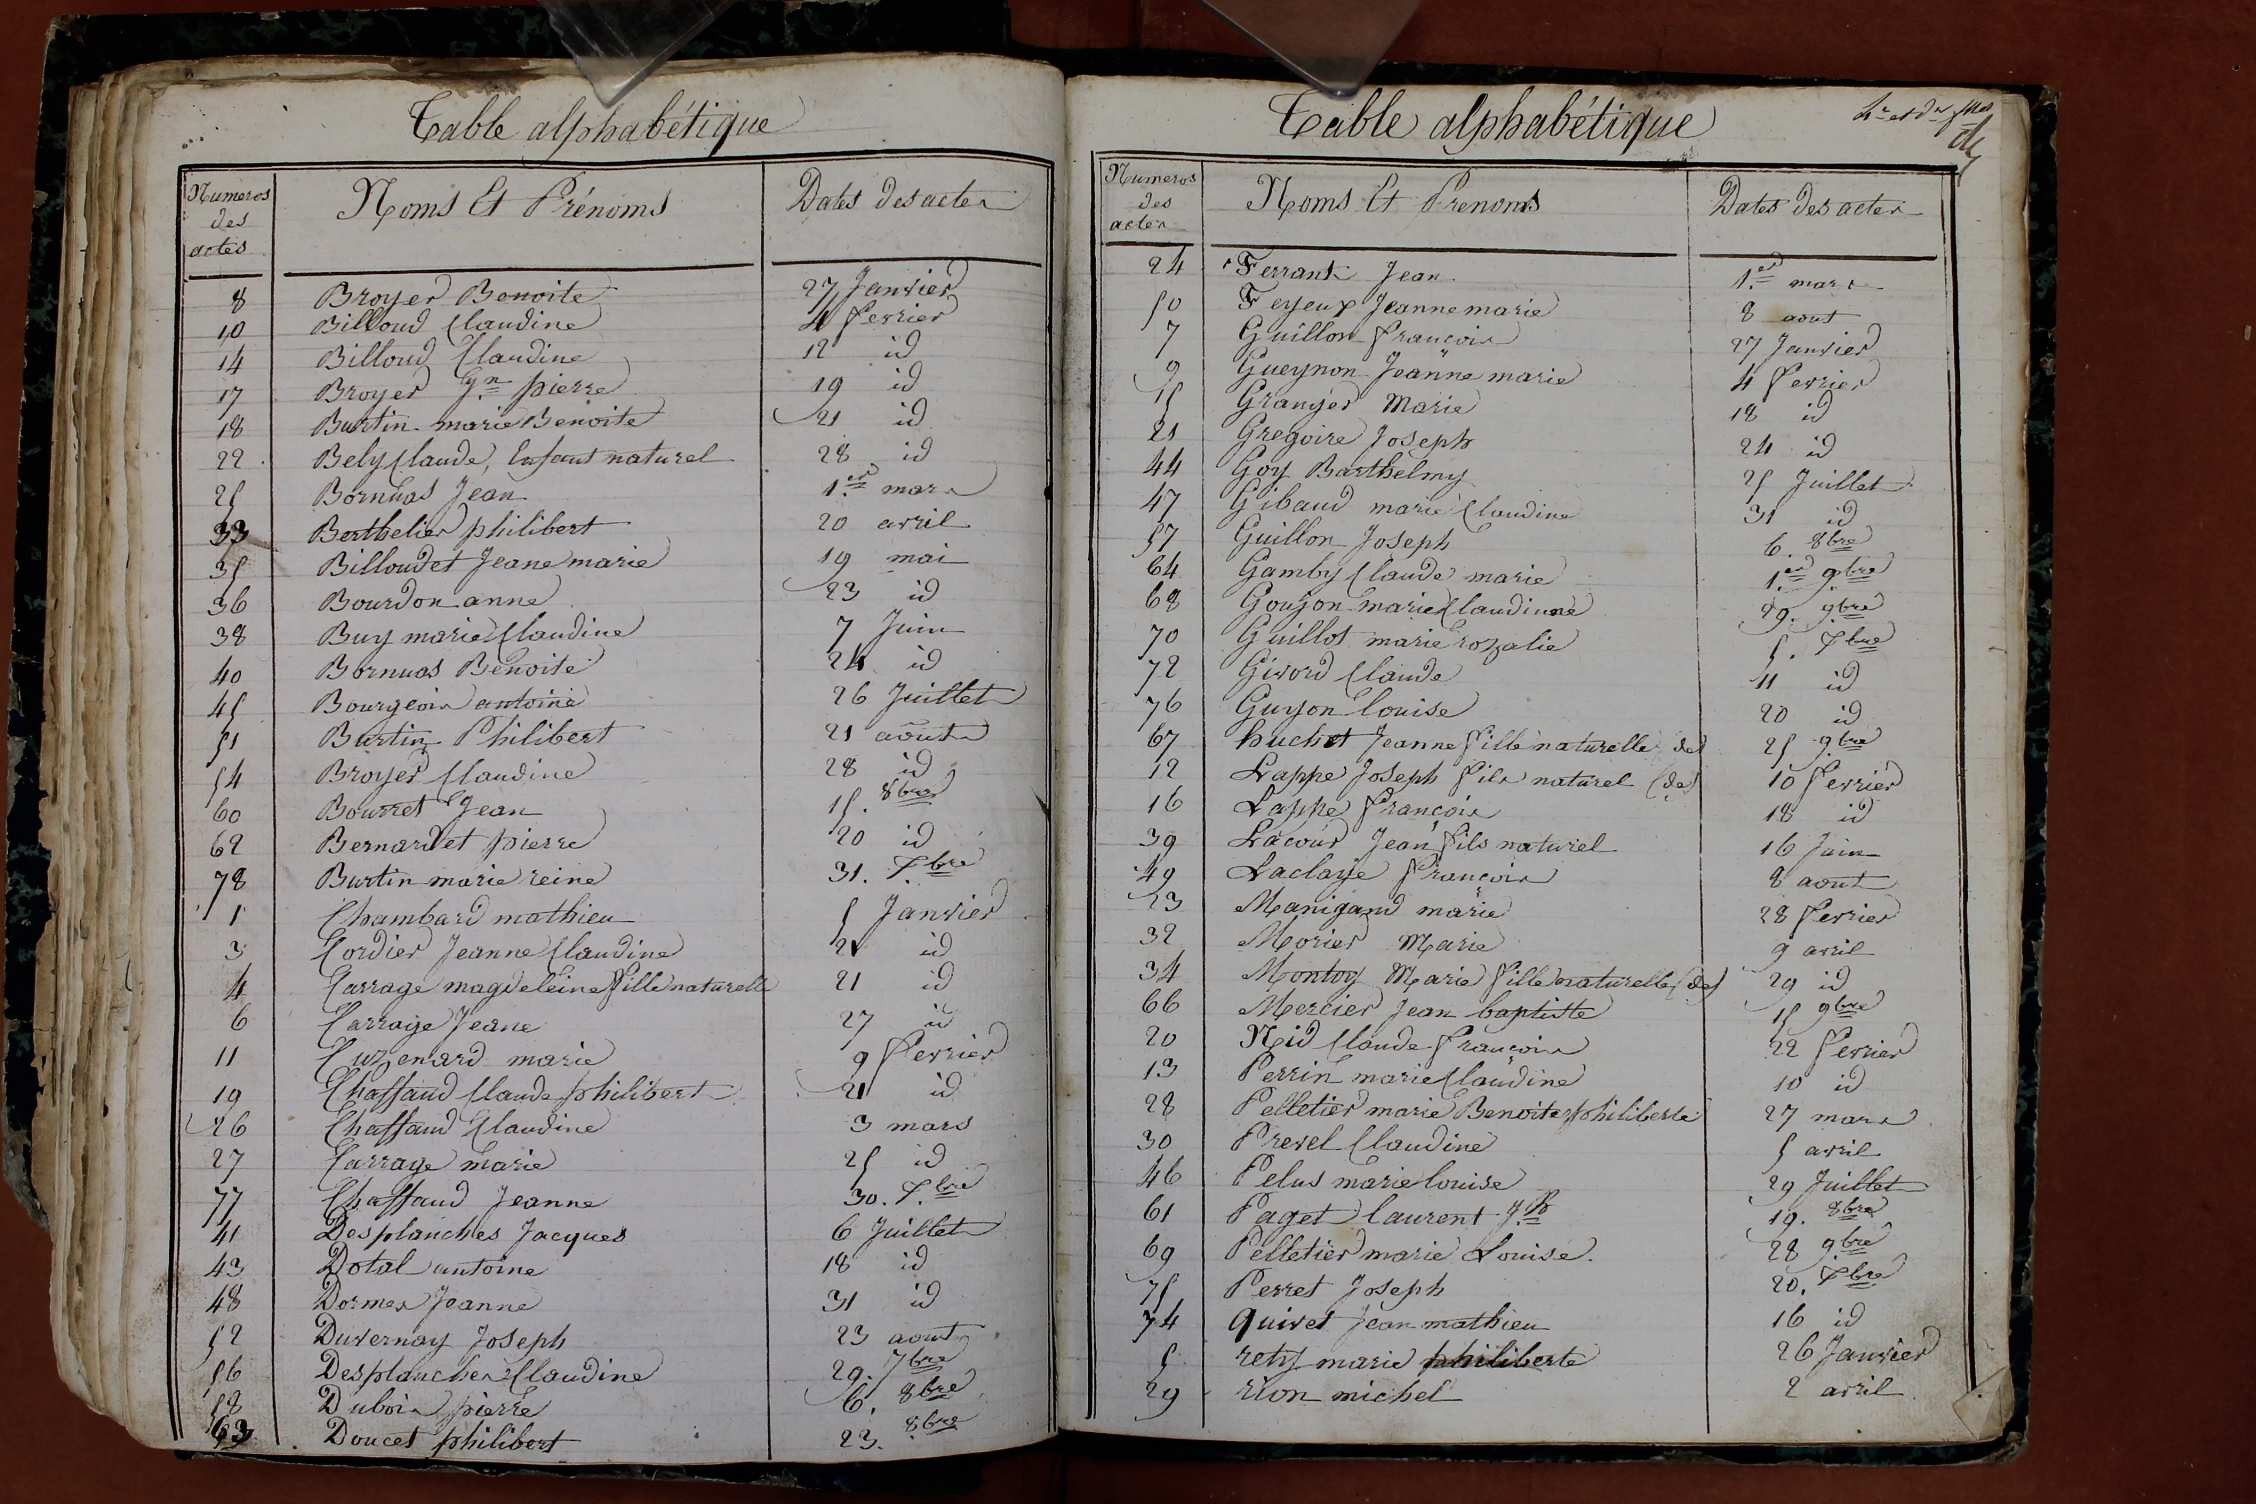 Table alphabétique
Numeros des actes Noms Et Prénoms Dates des actes
8 Broyer Benoite 27 Janvier
10 Billoud Claudine 4 fevrier
14 Billoud Claudine 12 id
17 Broyer Jn pierre 19 id
18 Burtin marie Benoite 21 id
22 Bely Claude, Enfant naturel 28 id
25 Bornuas Jean 1.er mars
33 Berthelier philibert 20 avril
35 Billoudet Jeane marie 19 mai
36 Bourdon anne 23 id
38 Buy marie Claudine 7 Juin
40 Bornuas Benoite 24 id
45 Bourgeois antoine 26 Juillet
51 Burtin Philibert 21 aout
54 Broyer Claudine 28 id
60 Bourret Jean 15. 8bre
62 Bernardet pierre 20 id
78 Burtin marie reine 31. Xbre
1 Chambard mathieu 5 Janvier
3 Cordier Jeanne Claudine 21 id
4 Carrage magdeleine fille naturelle 21 id
6 Carrage Jeane 27 id
11 Cuzenard marie 9 fevrier
19 Chaffaud Claude philibert 21 id
26 Chaffaud Claudine 3 mars
27 Carrage marie 25 id
77 Chaffaud Jeanne 30. Xbre
41 Desplanches Jacques 6 Juillet
43 Dotal antoine 18 id
48 Dormes Jeanne 31 id
52 Duvernay Joseph 23 aout
56 Desplanches Claudine 29. 7bre
58 Dubois pierre 6. 8bre
63 Doucet philibert 23. 8bre
Table alphabétique
Numeros des actes Noms Et Prenoms Dates des actes
24 Ferrant Jean 1.er mars
50 Feyeux Jeanne marie 8 aout
7 Guillon françois 27 Janvier
9 Gueynon Jeanne marie 4 fevrier
15 Granger Marie 18 id
21 Gregoire Joseph 24 id
44 Goy Barthelmy 25 Juillet
47 Gibaud marie Claudine 31 id
57 Guillon Joseph 6. 8bre
64 Gamby Claude marie 1.er 9bre
68 Goujon marie Claudinne 29. 9bre
70 Guillot marie rozalie 5. Xbre
72 Givord Claude 11 id
76 Guyon louise 20 id
67 huchet Jeanne fille naturelle de 25 9bre
12 Lappe Joseph fils naturel (de) 10 fevrier
16 Lappe françois 18 id
39 Lacour Jean fils naturel 16 Juin
49 Laclaye françois 8 aout
23 Manigand marie 28 fevrier
32 Morier Marie 9 avril
34 Montoy Marie fille naturelle (de) 29 id
66 Mercier Jean baptiste 15 9bre
20 Nid Claude françois 22 fevrier
13 Perrin marie Claudine 10 id
28 Pelletier marie Benoite philiberte 27 mars
30 Prevel Claudine 5 avril
46 Pelus marie louise 29 Juillet
61 Paget laurent Jh 19. 8bre
69 Pelletier marie Louise. 28 9bre
75 Perret Joseph 20. Xbre
74 quivet Jean mathieu 16 id
5 rety marie philiberte 26 Janvier
29 rion michel 2 avril